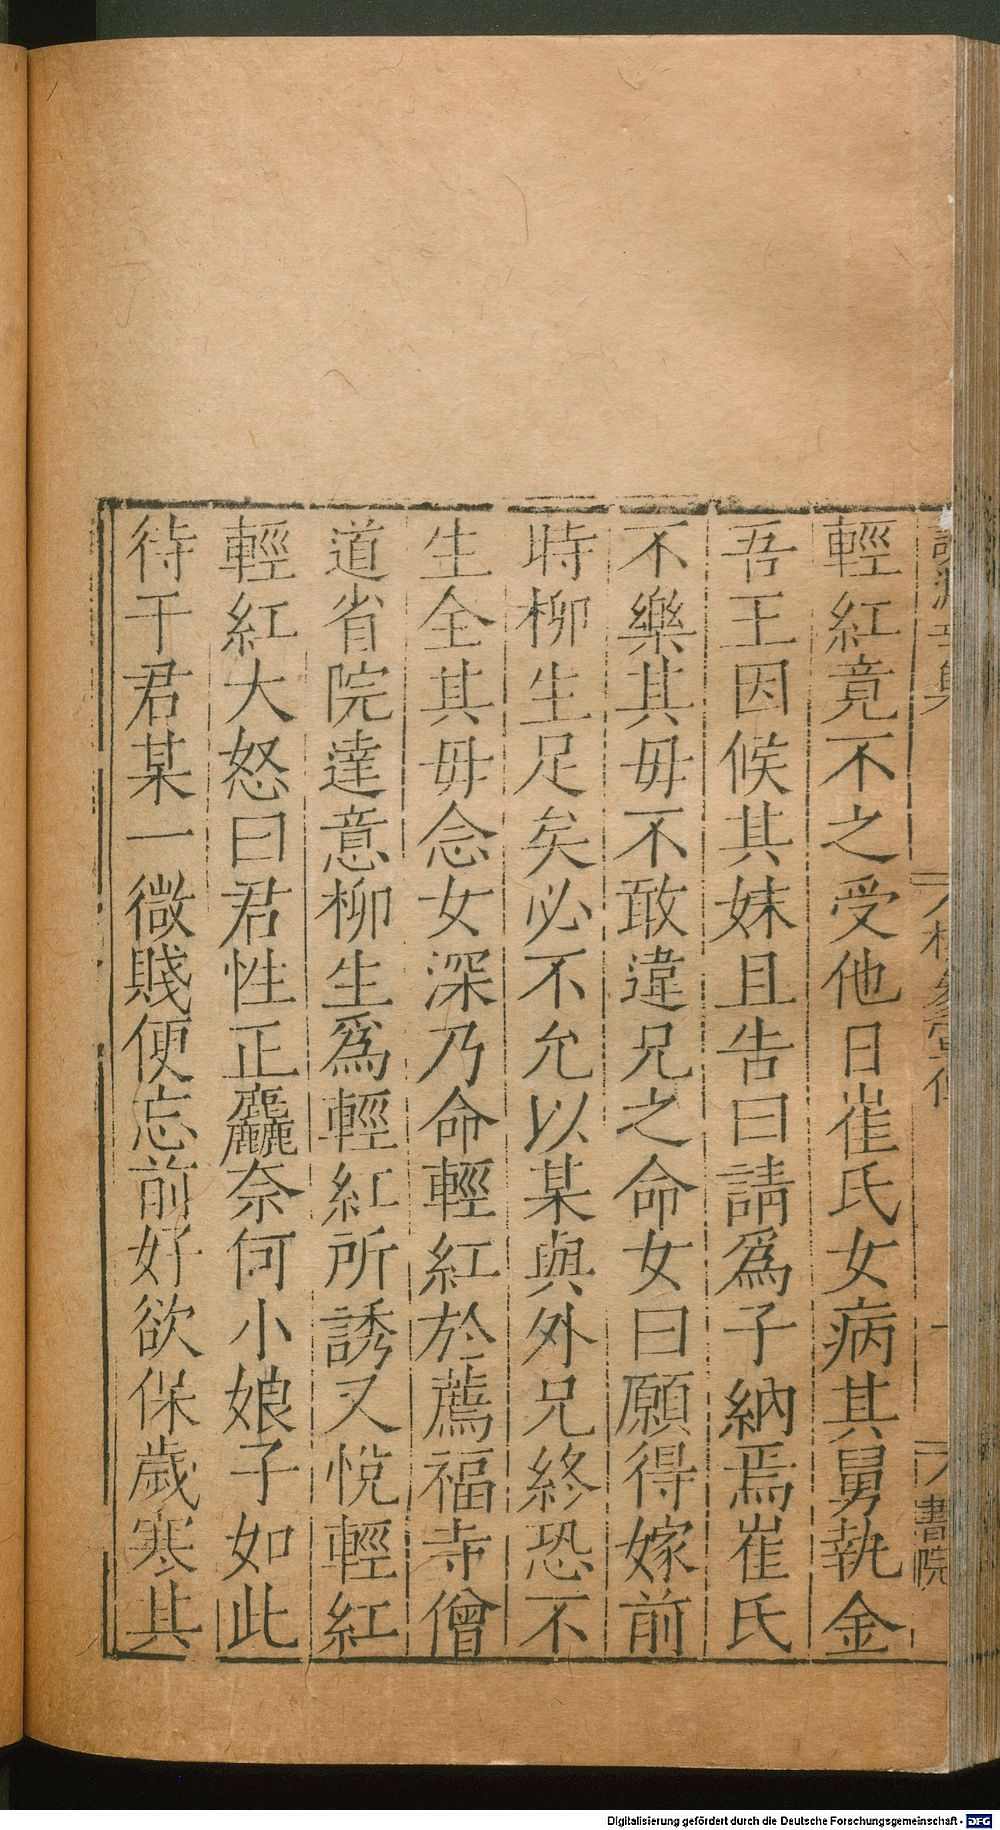 輕紅竟不之受他日崔氏女病其舅執金
吾王因候其妹且告曰請爲子納焉崔氏
不樂其毋不敢違兄之命女曰願得嫁前
時柳生足矣必不允以某與外兄終恐不
生全其毋念女深乃命輕紅於薦福寺僧
道省院達意柳生爲輕紅所誘又悅輕紅
輕紅大怒曰君性正麤奈何小娘子如此
待于君某一微賤便忘前好欲保歲寒其
書院
Digitalisierung gefördert durch die Deutsche Forschungsgemeinschaft - DFG